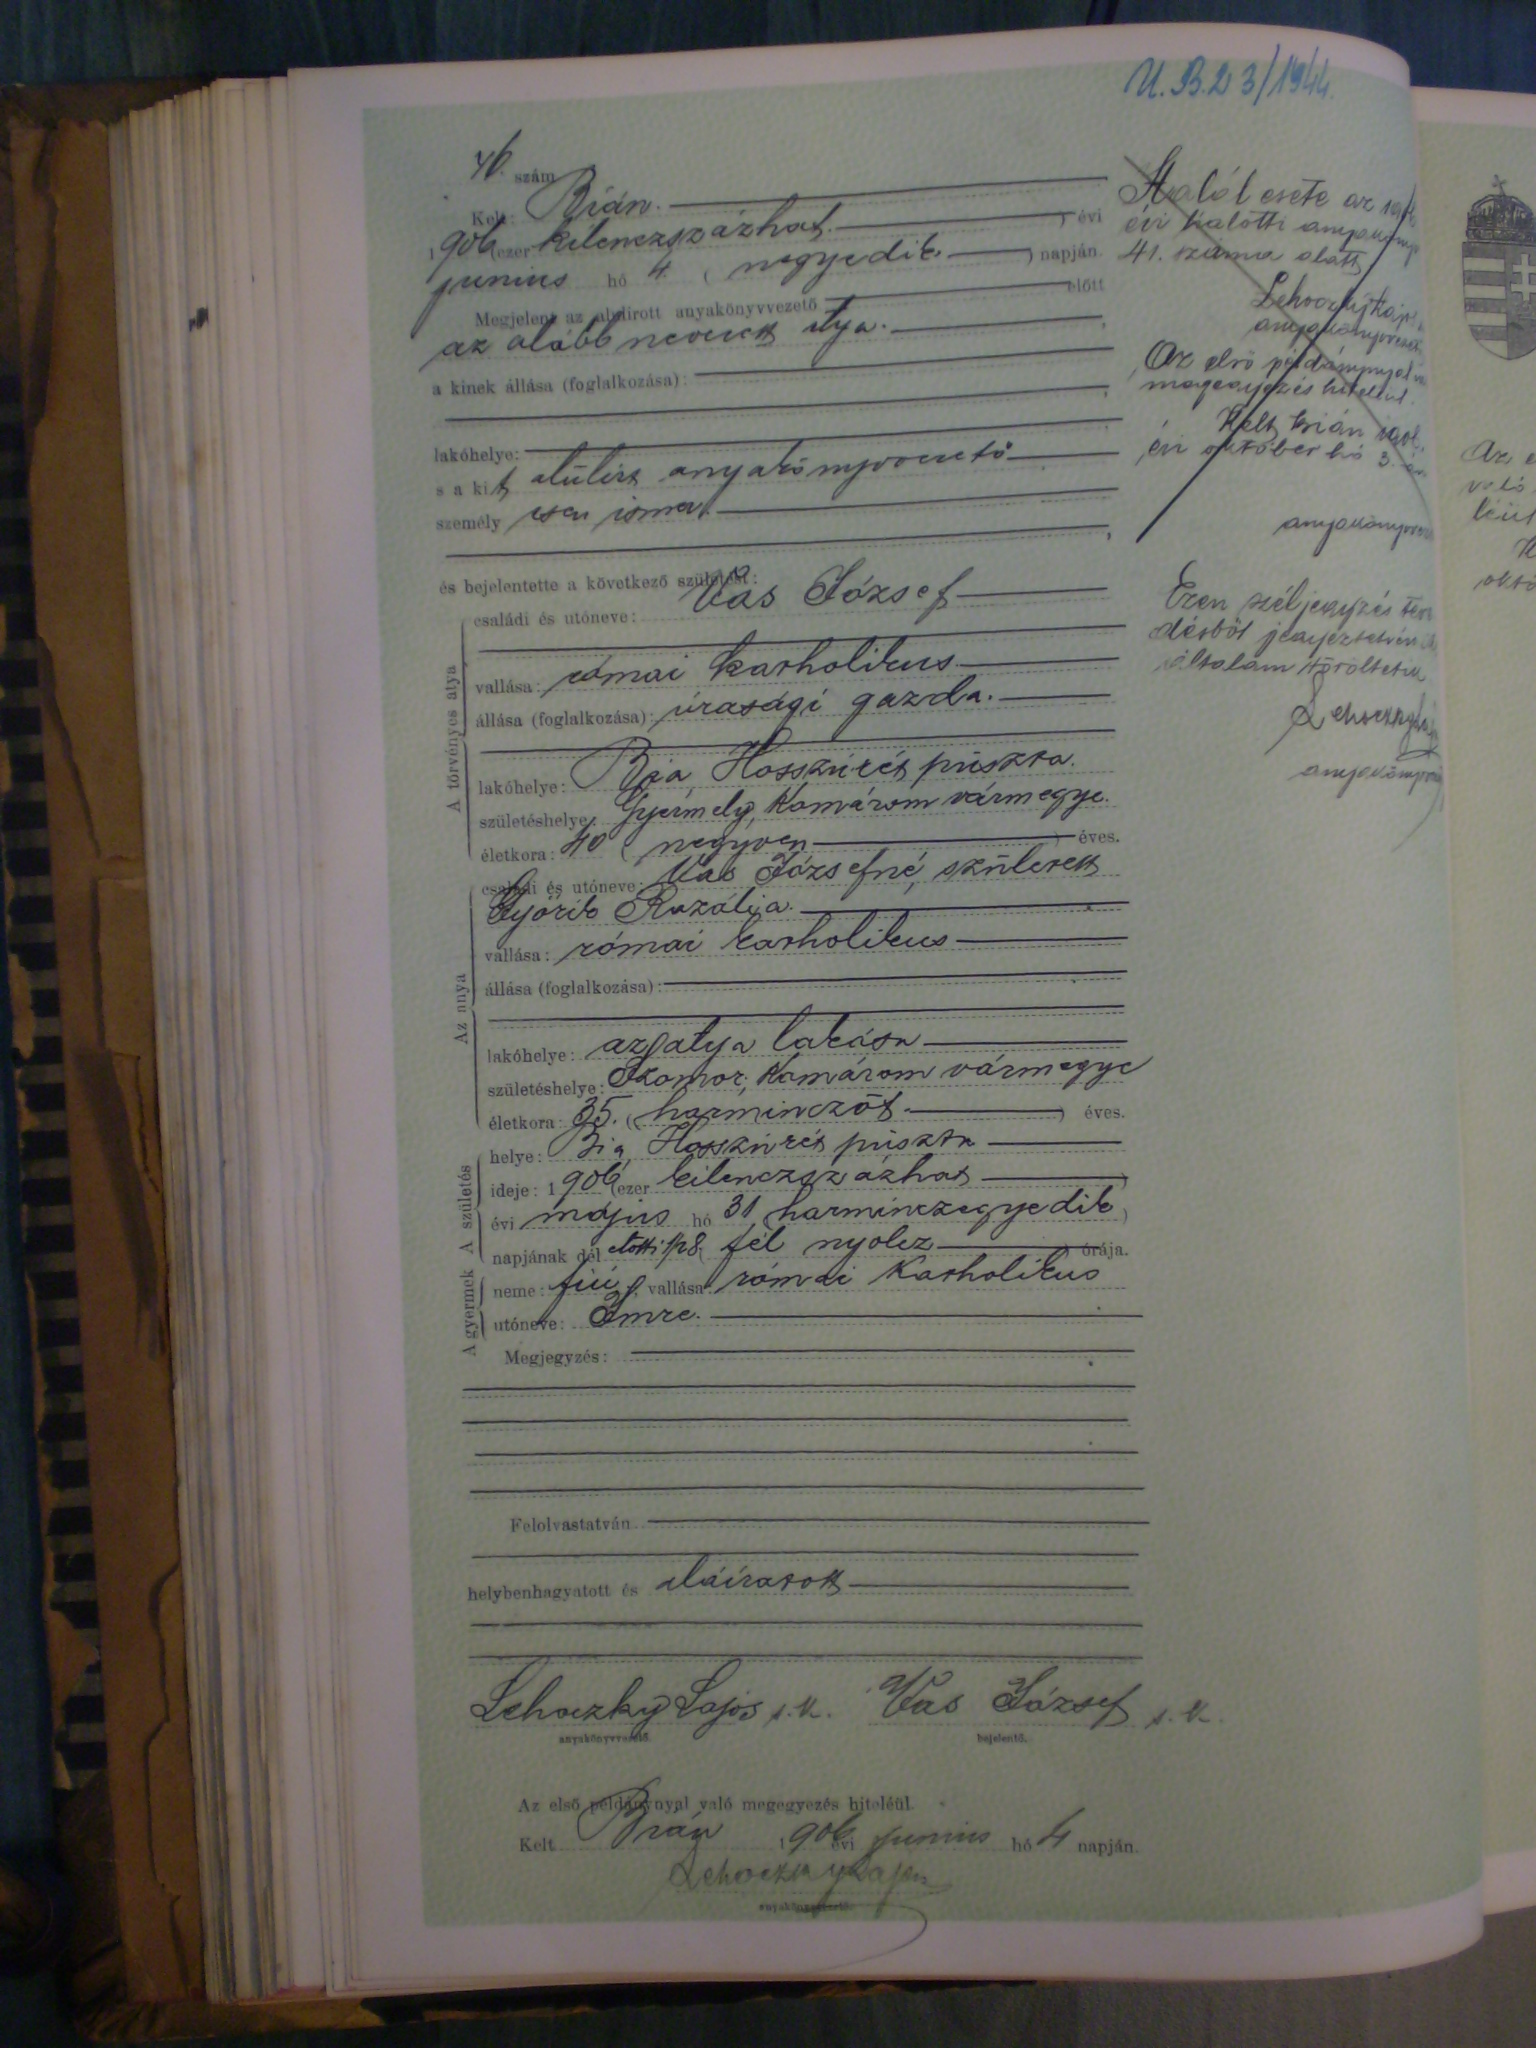 U. B. 23/1944.
46. szám
Kelt: Bián.
1906 (ezer kilenczszázhat.) évi
junius hó 4. (negyedik) napján.
Megjelent az alulirott anyakönyvvezető előtt
az alább nevezett atya.
a kinek állása (foglalkozása):
lakóhelye:
s a kit alulirt anyakönyvvezető
személy
és bejelentette a következő születést:
A törvényes atya
családi és utóneve: Vas József
vallása: római katholikus
állása (foglalkozása): úrasági gazda.
lakóhelye: Bia, Hosszúrét púszta.
születéshelye: Gyermely, Komárom vármegye.
életkora: 40 (negyven) éves.
Az anya
családi és utóneve: Vas Józsefné, született
Györik Rozália.
vallása: római katholikus
állása (foglalkozása):
lakóhelye: az atya lakása
születéshelye: Szomor, Komárom vármegye
életkora: 35. (harminczöt.) éves.
A születés
helye: Bia, Hosszúrét púszta
ideje: 1906 (ezer kilenczszázhat)
évi május hó 31 (harminczegyedik)
napjának dél előtti 1/2 8 (fél nyolcz) órája.
A gyermek
neme: fiú, vallása: római katholikus
utóneve: Imre.
Megjegyzés:
Felolvastatván
helybenhagyatott és aláiratott
Lehoczky Lajos s. k. Vas József s. k.
anyakönyvvezető. bejelentő.
Az első példánynyal való megegyezés hiteléül.
Kelt Bián 1906 évi junius hó 4 napján.
Lehoczky Lajos
anyakönyvvezető.
Halál esete az
évi halotti
41. száma alatt
Lehoczky
Az első példánynyal
megegyezés hiteléül.
Kelt Bián
évi október hó 3.
Ezen széljegyzés
désből jegyeztetvén
általam töröltetett
Lehoczky